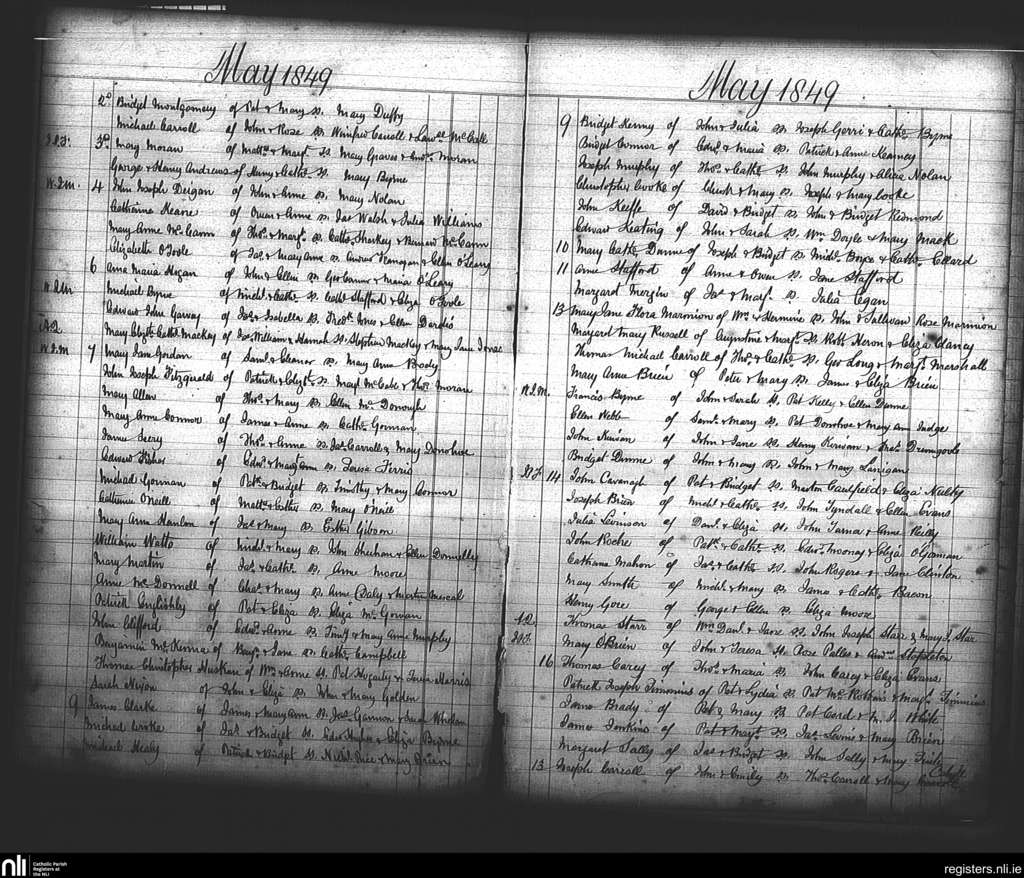 May 1849
2o Bridget Montgomery of Pat & Mary Sp. Mary Duffy
Michael Carroll of John & Rose Sp. Winifred Carroll & Lawce McCall
3o Mary Moran of Matthw & Margt Sp. Mary Graves & Andw Moran
George & Henry Andrews of Henry & Cathe Sp. Mary Byrne
W.I.M. 4 John Joseph Deigan of John & Anne Sp. Mary Nolan
Catherine Keane of Owen & Anne Sp. Jas Walsh & Julia Williams
Mary Anne McCann of Thos & Margt Sp. Cathe Sharkey & Bernard McCann
Elizabeth O'Toole of Jas & Mary Anne Sp. Andrew Finnegan & Ellen O'Leary
6 Anna Maria Hogan of John & Ellen Sp. Geo Connor & Maria O'Leary
Michael Byrne of Michl & Cathe Sp. Cathe Stafford & Eliza O'Toole
Edward John Garvey of Jas & Isabella Sp. Fredk Jones & Ellen Dardis
A.Q. Mary Elizth Cathe Mackey of Jas William & Hannah Sp. Stephen Mackey & Mary Jane
W.I.M 7 Mary Jane Jordan of Saml & Eleanor Sp. Mary Ann Brady
John Joseph Fitzgerald of Patrick & Elizth Sp. Margt McCabe & Thos Moran
Mary Allen of Thos & Mary Sp. Ellen McDonough
Mary Anne Connor of James & Anne Sp. Cathe Gorman
James Seery of Thos & Anne Sp. Jas Carroll & Mary Donohoe
Edward Fisher of Edwd & Mary Ann Sp. Teresa Ferris
Michael Gorman of Patk & Budget Sp. Timothy & Mary Connor
Catherine O'Neill of Matthw & Cathe Sp. Mary O'Neill
Mary Anne Hanlon of Jas & Mary Sp. Esther Gibson
William Watts of Michl & Mary Sp. John Sheehan & Ellen Donnelly
Mary Martin of Jas & Cathe Sp. Anne Moore
Anne McDonnell of Chas & Mary Sp. Anne Daly & Martin
Patrick Englishby of Pat & Eliza Sp. Eliza McGowan
John Clifford of Edwd & Anne Sp. Timy & Mary Anne Murphy
Benjamin McKenna of Benj & Jane Sp. Cathe Campbell
Thomas Christopher of Wm & Anne Sp. Pat Hogarty & Harris
Sarah Nixon of John & Eliza Sp. John & Mary Golden
9 James Clarke of James & Mary Ann Sp. Jas Gannon & Whelan
Michael of Jas & Budget Sp. & Eliza Byrne
Michael Healy of Patrick & Budget Sp. & Mary Brien
May 1849
9 Bridget Kenny of John & Julia Sp. Joseph Gorri & Cathe Byrne
Budget Connor of Edwd & Maria Sp. Patrick & Anne Kearney
Joseph Murphy of Thos & Cathe Sp. John Murphy & Alicia Nolan
Christopher Cooke of Christ & Mary Sp. Joseph & Mary Cooke
John Keeffe of David & Bridget Sp. John & Bridget Redmond
Edward Keating of John & Sarah Sp. Wm Doyle & Mary Mack
10 Mary Cathe Dunne of Joseph & Bridget Sp. Michl Boyce & Cathe Collard
11 Anne Stafford of Anne & Owen Sp. Jane Stafford
Margaret Mergin of Jas & Margt Sp. Julia Egan
13 Mary Jane Flora Marmion of Wm & Hermine Sp. John O'Sullivan Rose Marmion
Margaret Mary Russell of Augustine & Margt Sp. Robt Heron & Eliza Clancy
Thomas Michael Carroll of Thos & Cathe Sp. Geo Long & Margt Marshall
Mary Anne Brien of Peter & Mary Sp. James & Eliza Brien
W.I.M. Francis Byrne of John & Sarah Sp. Pat Kelly & Ellen Dunne
Ellen Webb of Saml & Mary Sp. Pat Donohoe & Mary Ann Judge
John Kirwan of John & Jane Sp. Henry Kirwan & Dromgoole
Bridget Dunne of John & Mary Sp. John & Mary Lanigan
14 John Cavanagh of Pat & Bridget Sp. Martin Caulfield & Eliza Nulty
Joseph Brien of Michl & Cathe Sp. John Tyndall & Ellen Evans
Julia Levinson of Danl & Eliza Sp. John & Anne Reilly
John Roche of Patk & Cathe Sp. Edwd Mooney & Eliza O'Gorman
Catherine Mahon of Jas & Cathe Sp. John Rogers & Jane Clinton
Mary Smith of Michl & Mary Sp. James & Cathe Bacon
Henry Gore of George & Ellen Sp. Eliza Moore
A.Q. Thomas Starr of Wm Danl & Jane Sp. John Joseph Starr & Mary J. Starr
Mary O'Brien of John & Teresa Sp. Rose Palles & Andw Stapleton
16 Thomas Carey of Thos & Maria Sp. John Carey & Eliza Evans
Patrick Joseph Timmins of Pat & Lydia Sp. Pat & Margt Timmins
James Brady of Pat & Mary Sp. Pat & M. J. White
James Jenkins of Pat & Margt Sp. Jas & Mary Brien
Margaret Sally of Jas & Bridget Sp. John Sally & Mary
13 Joseph Carroll of John & Emily Sp. Thos Carroll & Mary
nli Catholic Parish
Registers at
the NLI
registers.nli.ie